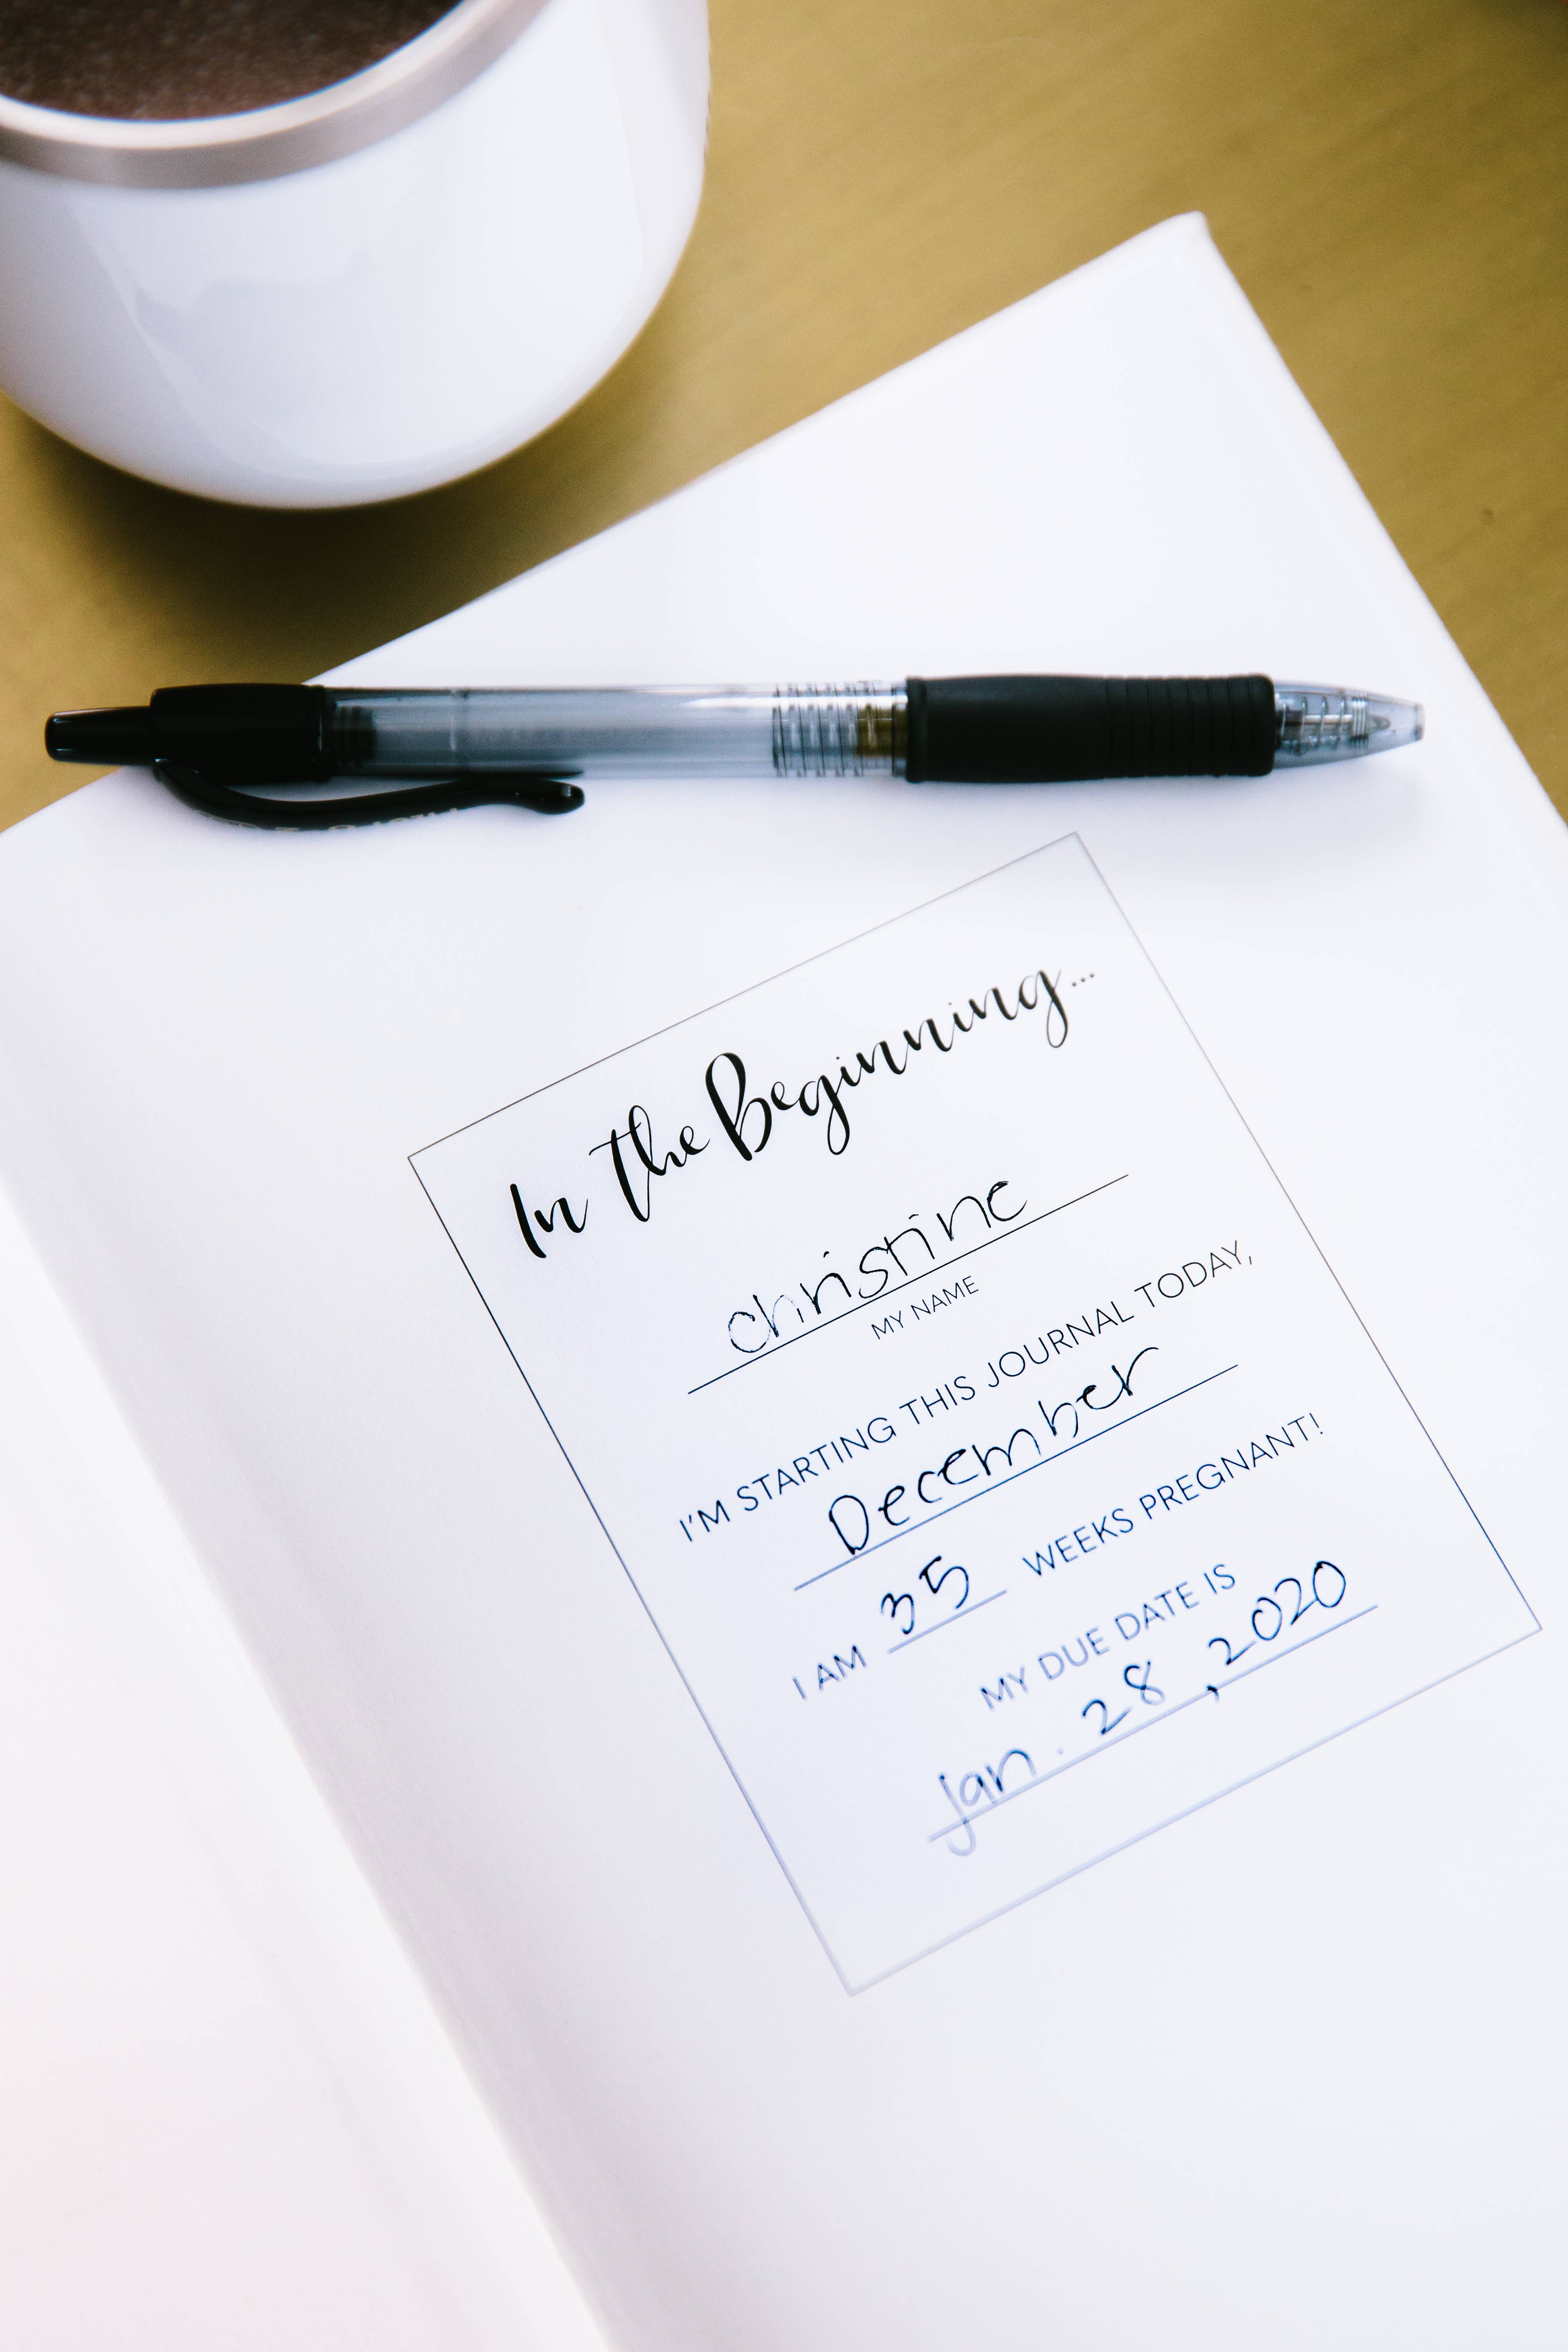 In the Beginning...
christine
MY NAME
I'M STARTING THIS JOURNAL TODAY,
December
I AM 35 WEEKS PREGNANT!
MY DUE DATE IS
Jan. 28, 2020